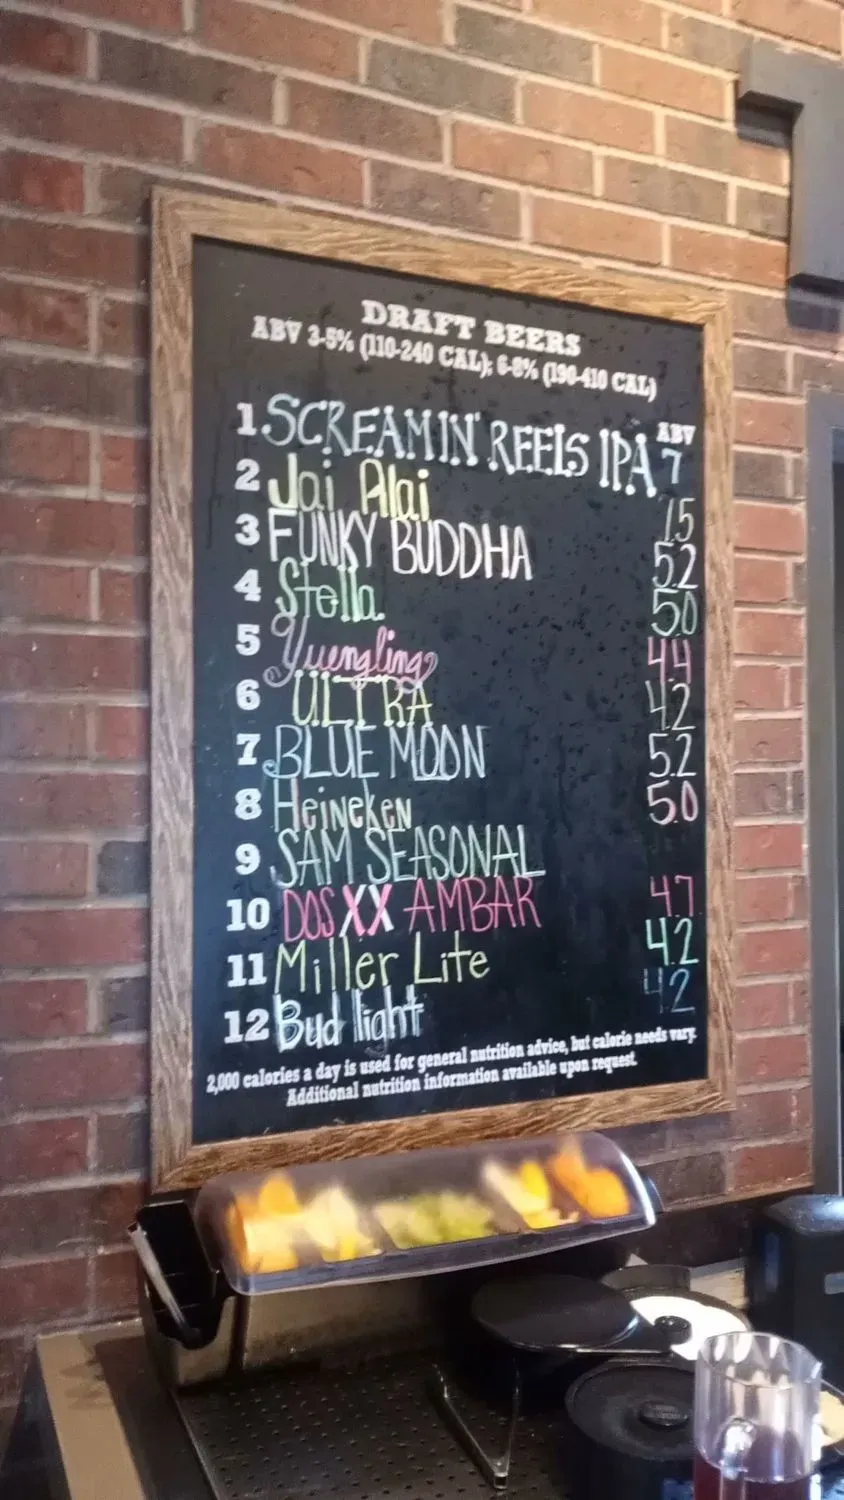 DRAFT BEERS
ABV 3-5% (110-240 CAL); 6-8% (190-410 CAL)
ABV
1 SCREAMIN' REELS IPA 7
2 Jai Alai 7.5
3 FUNKY BUDDHA 5.2
4 Stella. 5.0
5 Yuengling 4.4
6 ULTRA 4.2
7 BLUE MOON 5.2
8 Heineken 5.0
9 SAM SEASONAL
10 DOS XX AMBAR 4.7
11 Miller Lite 4.2
12 Bud light 4.2
2,000 calories a day is used for general nutrition advice, but calorie needs vary.
Additional nutrition information available upon request.